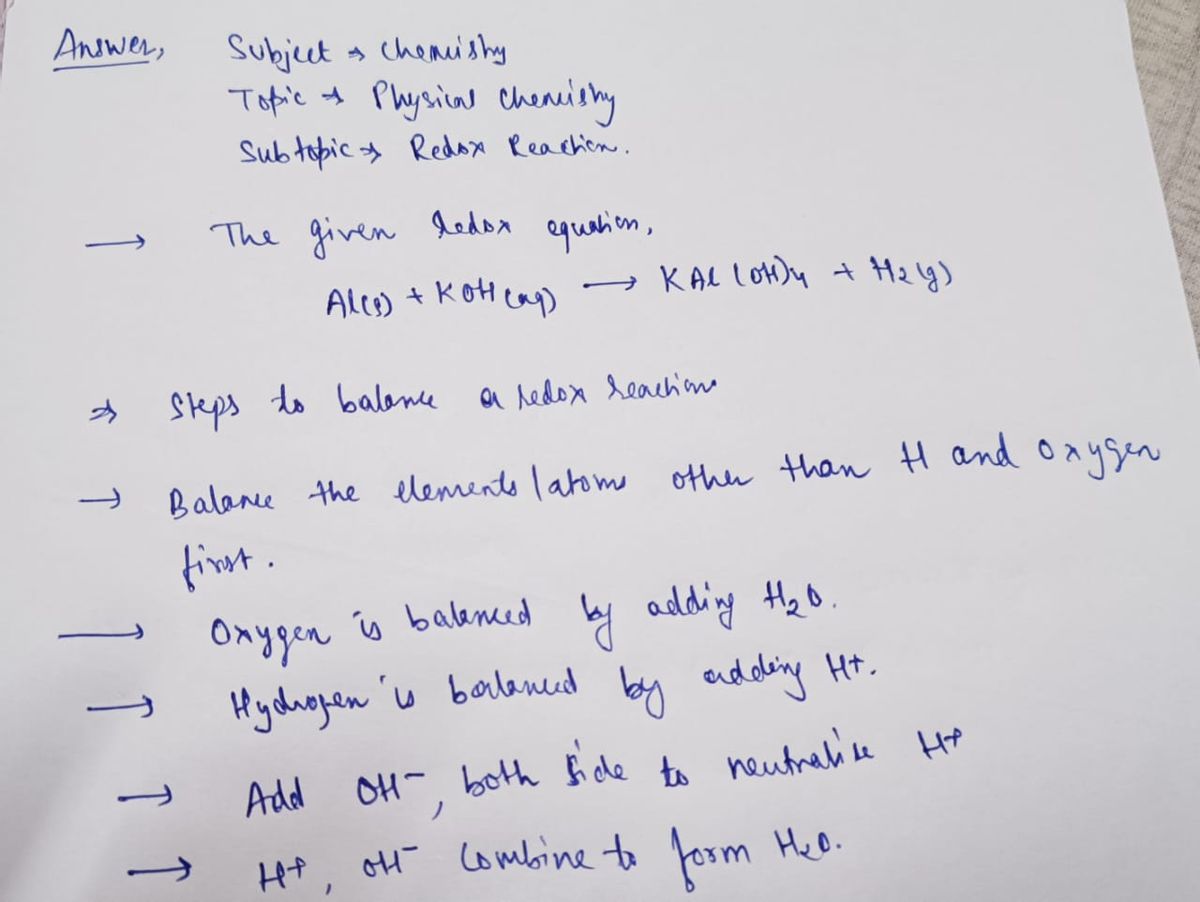 Answer, Subject → Chemistry
Topic → Physical Chemistry
Subtopic → Redox Reaction.
→ The given redox equation,
Al(s) + KOH(aq) → KAl(OH)4 + H2(g)
⇒ Steps to balance a redox reactions
→ Balance the elements/atoms other than H and Oxygen
first.
→ Oxygen is balanced by adding H2O.
→ Hydrogen is balanced by adding H+.
→ Add OH-, both side to neutralise H+
→ H+, OH- Combine to form H2O.